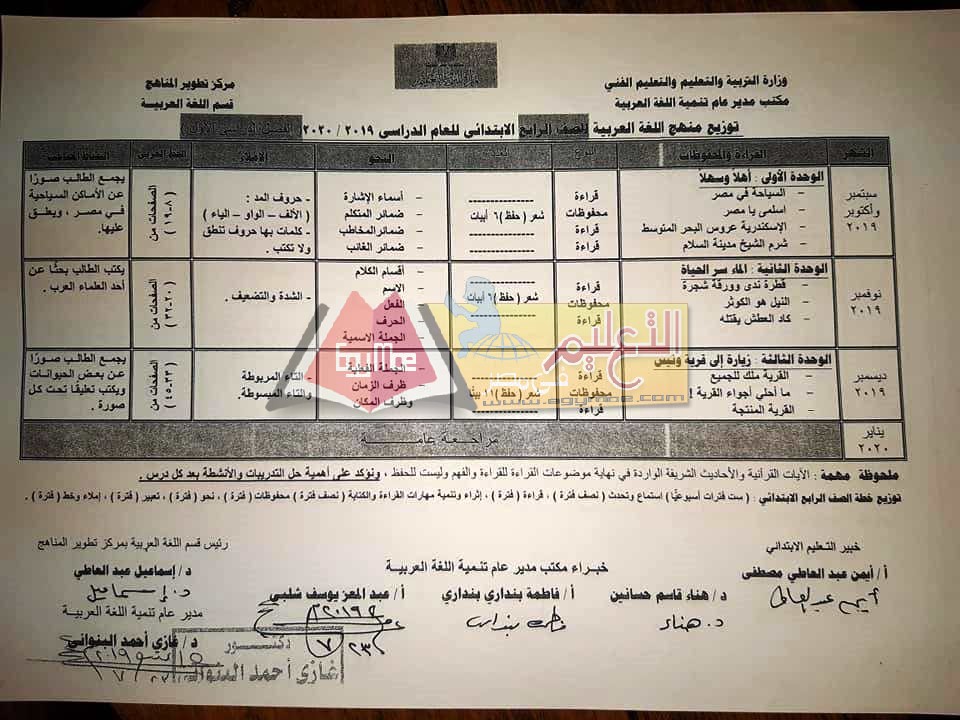 وزارة التربية والتعليم والتعليم الفني
مكتب مدير عام تنمية اللغة العربية
مركز تطوير المناهج
قسم اللغة العربية
توزيع منهج اللغة العربية (الصف الرابع الابتدائي للعام الدراسى ٢٠١٩ / ٢٠٢٠ (الفصل الدراسى الأول)
الشهر القراءة والمحفوظات النوع النحو الإملاء الخط العربى
سبتمبر وأكتوبر ٢٠١٩
الوحدة الأولى : أهلا وسهلا
- السياحة في مصر
- اسلمى يا مصر
- الإسكندرية عروس البحر المتوسط
- شرم الشيخ مدينة السلام
قراءة
محفوظات
قراءة
قراءة
------------
شعر (حفظ) ٦ أبيات
------------
------------
- أسماء الإشارة
- ضمائر المتكلم
- ضمائر المخاطب
- ضمائر الغائب
- حروف المد :
( الألف – الواو – الياء )
- كلمات بها حروف تنطق
ولا تكتب .
الصفحات من
( ٨ - ١٩ )
يجمع الطالب صورًا
عن الأماكن السياحية
في مصر ، ويعلق
عليها.
نوفمبر ٢٠١٩
الوحدة الثانية : الماء سر الحياة
- قطرة ندى وورقة شجرة
- النيل هو الكوثر
- كاد العطش يقتله
قراءة
محفوظات
قراءة
شعر (حفظ) ٦ أبيات
- أقسام الكلام
- الاسم
- الفعل
- الحرف
- الجملة الاسمية
- الشدة والتضعيف .
الصفحات من
( ٢٠ - ٣٢ )
يكتب الطالب بحثًا عن
أحد العلماء العرب .
ديسمبر ٢٠١٩
الوحدة الثالثة : زيارة إلى قرية ونيس
- القرية ملك للجميع
- ما أحلي أجواء القرية !
- القرية المنتجة
قراءة
محفوظات
قراءة
شعر (حفظ) ١١ بيتًا
- الجملة الفعلية
- ظرف الزمان
وظرف المكان
- التاء المربوطة
والتاء المبسوطة.
الصفحات من
( ٣٣ - ٤٥ )
يجمع الطالب صورًا
عن بعض الحيوانات
ويكتب تعليقًا تحت كل
صورة .
يناير ٢٠٢٠
مراجعة عامة
ملحوظة مهمة : الآيات القرآنية والأحاديث الشريفة الواردة في نهاية موضوعات القراءة للقراءة والفهم وليست للحفظ ، ونؤكد على أهمية حل التدريبات والأنشطة بعد كل درس .
توزيع خطة الصف الرابع الابتدائي : ( ست فترات أسبوعيًا ) استماع وتحدث ( نصف فترة ) ، قراءة ( فترة ) ، إثراء وتنمية مهارات القراءة والكتابة ( نصف فترة ) محفوظات ( فترة ) ، نحو ( فترة ) ، تعبير ( فترة ) ، إملاء وخط ( فترة ) .
خبير التعليم الابتدائي
خبراء مكتب مدير عام تنمية اللغة العربية
رئيس قسم اللغة العربية بمركز تطوير المناهج
أ / أيمن عبد العاطي مصطفى
د / هناء قاسم حسانين
أ / فاطمة بنداري بنداري
أ / عبد المعز يوسف شلبي
د / إسماعيل عبد العاطي
أيمن عبد العاطى
د. هناء
فاطمة بندارى
د. إسماعيل
مدير عام تنمية اللغة العربية
د / غازي أحمد البنواني
دكتور
التعليم
في مصر
www.egymhe.com
EgyMhe